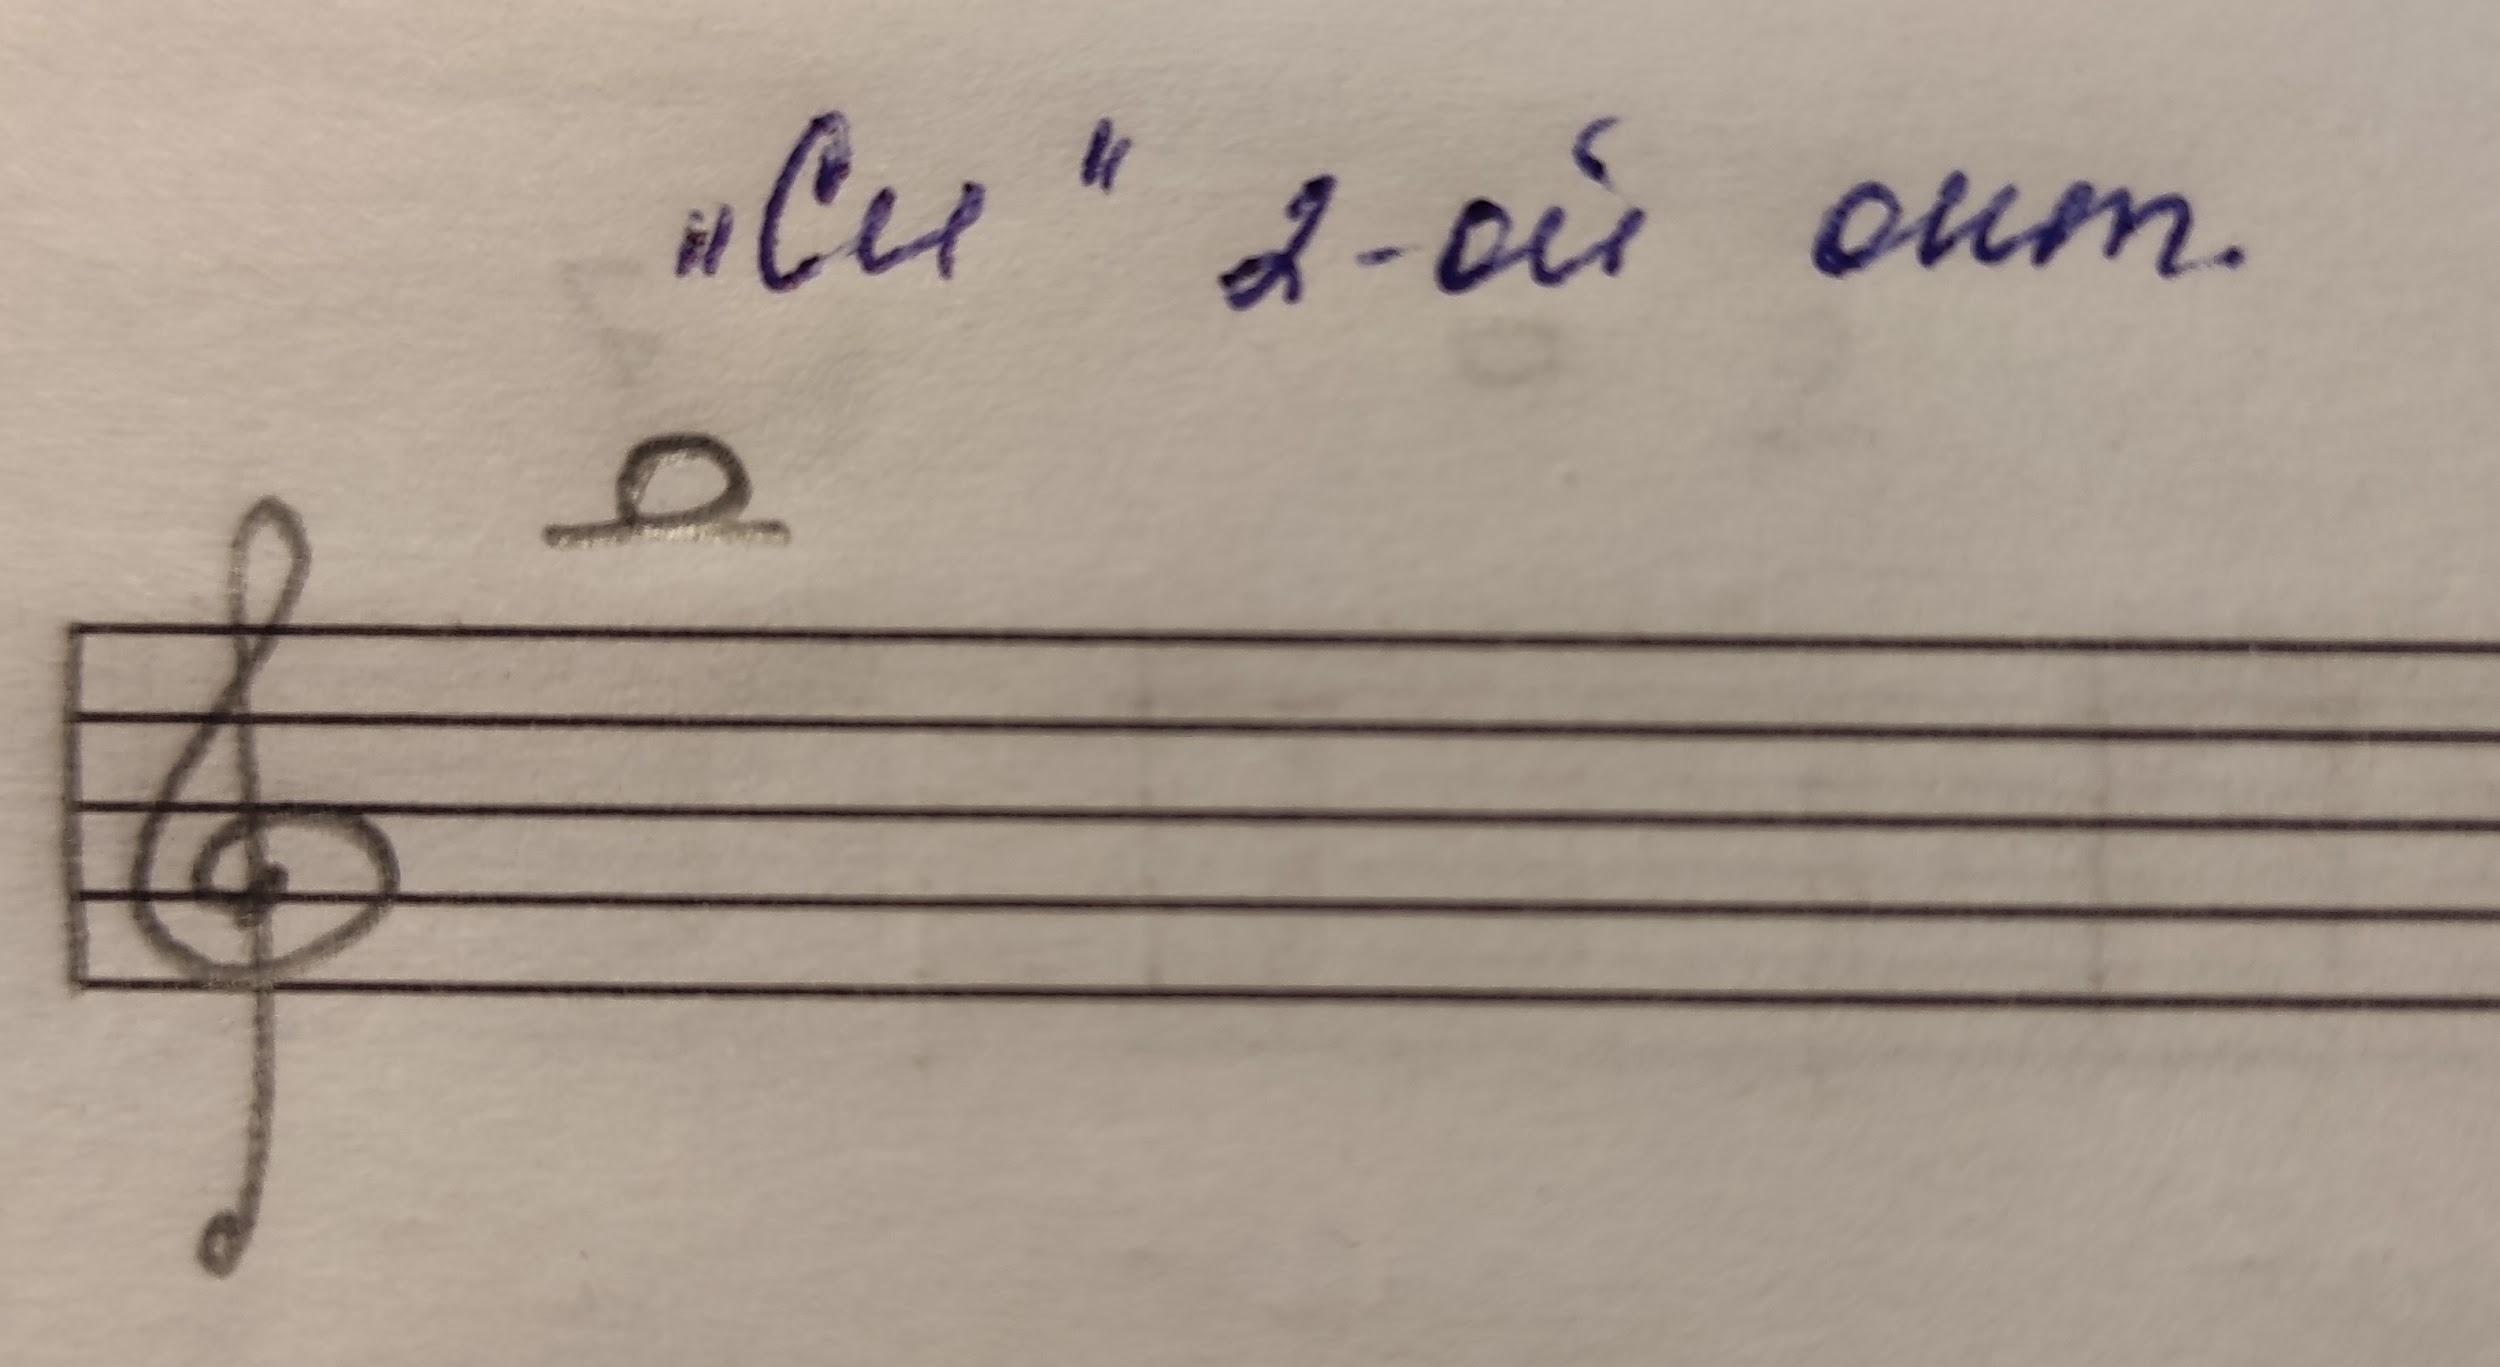 „Си" 2-ой окт.